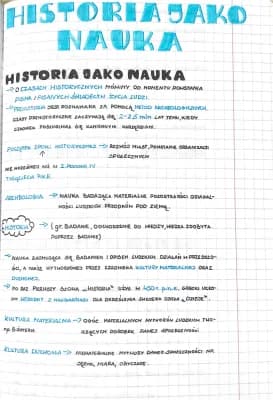 HISTORIA JAKO
NAUKA
HISTORIA JAKO NAUKA
→ O CZASACH HISTORYCZNYCH MÓWIMY OD MOMENTU POWSTANIA
PISMA I PISANYCH ŚWIADECTW ŻYCIA LUDZI.
→ PREHISTORIA JEST POZNAWANA ZA POMOCĄ METOD ARCHEOLOGICZNYCH,
CZASY PREHISTORYCZNE ZACZYNAJĄ SIĘ 2-2,5 mln LAT TEMU, KIEDY
CZŁOWIEK POSŁUGIWAŁ SIĘ KAMIENNYMI NARZĘDZIAMI.
POCZĄTEK EPOKI HISTORYCZNEJ → ROZWÓJ MIAST, POWSTANIE ORGANIZACJI
SPOŁECZNYCH
NIE WCZEŚNIEJ NIŻ W I POŁOWIE IV
TYSIĄCLECIA P.N.E.
ARCHEOLOGIA → NAUKA BADAJĄCA MATERIALNE POZOSTAŁOŚCI DZIAŁAL-
NOŚCI LUDZKICH PRZODKÓW POD ZIEMIĄ.
HISTORIA → (gr. BADANIE, DOCHODZENIE DO WIEDZY, WIEDZA ZDOBYTA
POPRZEZ BADANIE)
→ NAUKA ZAJMUJĄCA SIĘ BADANIEM I OPISEM LUDZKICH DZIAŁAŃ W PRZESZŁO-
ŚCI, A TAKŻE WYTWORZONEJ PRZEZ CZŁOWIEKA KULTURY MATERIALNEJ ORAZ
DUCHOWEJ.
→ PO RAZ PIERWSZY SŁOWA "HISTORIA" UŻYŁ W 450 r. p.n.e. GRECKI UCZO-
NY HERODOT Z HALIKARNASU DLA OKREŚLENIA SWOJEGO DZIEŁA "DZIEJE".
KULTURA MATERIALNA → OGÓŁ MATERIALNYCH WYTWORÓW LUDZKICH TWO-
RZĄCYCH DOROBEK DANEJ SPOŁECZNOŚCI
KULTURA DUCHOWA → NIEMATERIALNE WYTWORY DANEJ SPOŁECZNOŚCI NP.
JĘZYK, WIARA, OBYCZAJE.